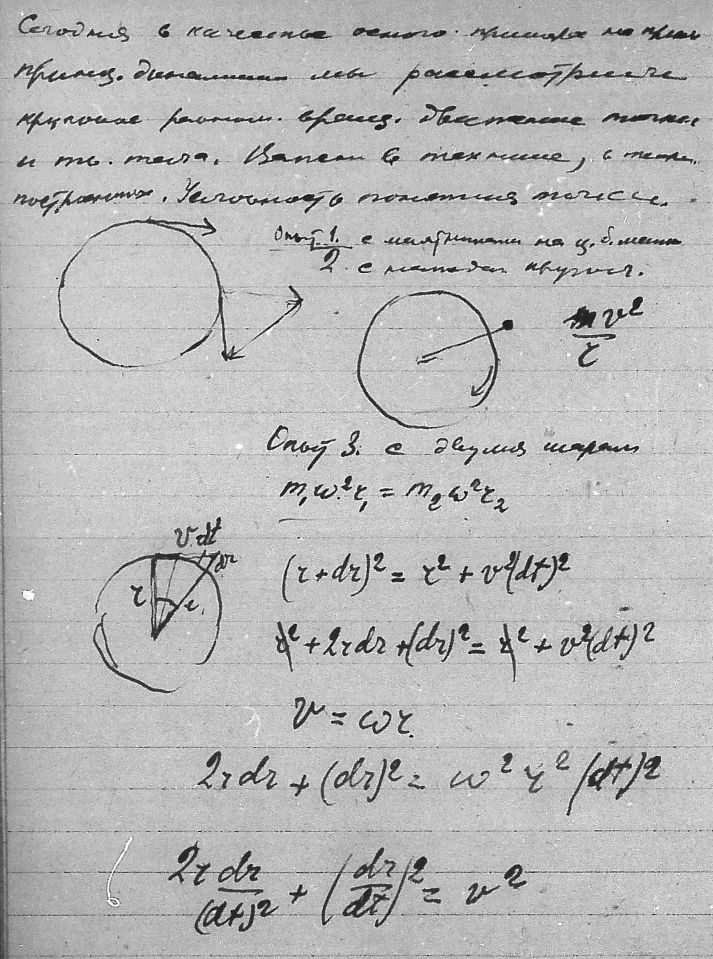 Сегодня в качестве основного примера на
принц. динамики мы рассмотрим
круговое равном. вращ. движение точки
и тв. тела. в технике, в
Условность понятия точки.
Опыт 1. с маятниками на ц. б. маш.
2 с
mv²/r
Опыт 3. с двумя шарами
m₁ω²r₁ = m₂ω²r₂
v dt
dr
r r
(r+dr)² = r² + v²(dt)²
r² + 2rdr + (dr)² = r² + v²(dt)²
v = ωr.
2rdr + (dr)² = ω² r² (dt)²
2r dr/(dt)² + (dr/dt)² = v²